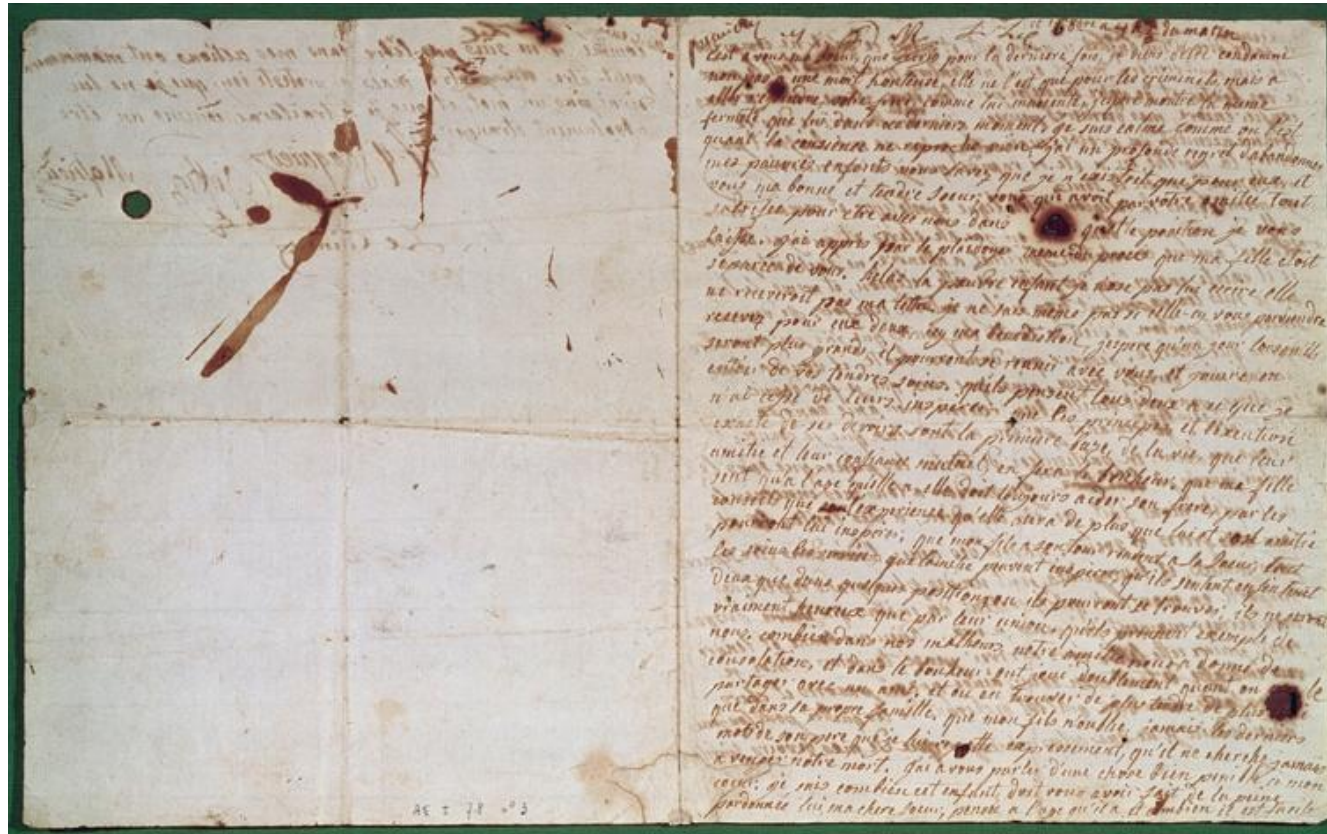 ce 16. 8bre a 4 h ½ du matin
c'est a vous ma soeur, que j'ecris pour la derniere fois, je viens d'etre condamné
non pas a une mort honteuse, elle ne l'est que pour les criminels, mais a
aller rejoindre votre frere, comme lui innocente, j'espere montrer la meme
fermeté que lui dans ces derniers moments. je suis calme comme on l'est
quand la conscience ne reproche rien, j'ai un profond regret d'abandonner
mes pauvres enfants vous savez que je n'existois que pour eux, et
vous ma bonne et tendre soeur, vous qui avez par votre amitié tout
sacrifiés pour etre avec nous dans quelle position je vous
laisse. j'ai appris par le plaidoyer meme du proces que ma fille etoit
separée de vous. helas la pauvre enfant je n'ose pas lui ecrire elle
ne receveroit pas ma lettre je ne sais meme pas si celle-ci vous parviendra
recevez pour eux deux ici ma benediction, j'espere qu'un jour lorsqu'ils
seront plus grands ils pourront se reunir avec vous, et jouir en
entier de vos tendres soins. qu'ils pensent tous deux a ce que je
n'ai cessé de leurs inspirer que les principes et l'execution
exacte de ses devoirs sont la premiere base de la vie, que leur
amitié et leur confiance mutuel en fera le bonheur, que ma fille
sent qu'a l'age qu'elle a elle doit toujours aider son frere par les
conseils que l'experience qu'elle aura de plus que lui et son amitié
pourront lui inspirer, que mon fils a son tour rende a sa soeur, tous
les soins les services que l'amitié peuvent inspirer, qu'ils sentent enfin tous
deux que dans quelque position ou ils pourront se trouver ils ne seront
vraiment heureux que par leur union. qu'ils prennent exemple de
nous, combien dans nos malheurs notre amitié nous a donné de
consolation, et dans le bonheur on jouit doublement quand on le
partager avec un ami, et ou en trouver de plus tendre de plus
que dans sa propre famille, que mon fils n'oublie jamais les derniers
mots de son pere que je lui repette expressement, qu'il ne cherche jamais
a venger notre mort. j'ai a vous parler d'une chose bien penible a mon
coeur. je sais combien cet enfant, doit vous avoir fait de la peine
pardonnez lui, ma chere soeur, pensez a l'age qu'il a et combien il est facile
AE I 78 n° 3